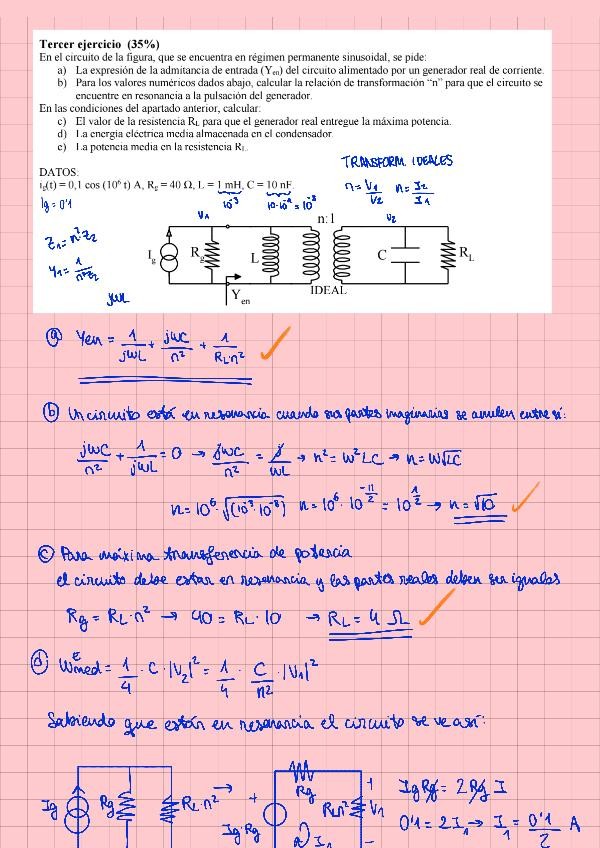 Tercer ejercicio (35%)
En el circuito de la figura, que se encuentra en régimen permanente sinusoidal, se pide:
a) La expresión de la admitancia de entrada (Yen) del circuito alimentado por un generador real de corriente.
b) Para los valores numéricos dados abajo, calcular la relación de transformación "n" para que el circuito se
encuentre en resonancia a la pulsación del generador.
En las condiciones del apartado anterior, calcular:
c) El valor de la resistencia RL para que el generador real entregue la máxima potencia.
d) La energía eléctrica media almacenada en el condensador.
e) La potencia media en la resistencia RL.
TRANSFORM. IDEALES
DATOS:
ig(t) = 0,1 cos (10⁶ t) A, Rg = 40 Ω, L = 1 mH, C = 10 nF.
n = V1/V2 n = I2/I1
Ig = 0'1
10⁻³ 10·10⁻⁹ = 10⁻⁸
V1 n:1 V2
Z1 = n²·Z2
Y1 = 1/n²Z2
Ig Rg L C RL
jωL
Yen IDEAL
a) Yen = 1/jωL + jωC/n² + 1/RLn²
b) Un circuito está en resonancia cuando sus partes imaginarias se anulen entre sí:
jωC/n² + 1/jωL = 0 → jωC/n² = j/ωL → n² = ω²LC → n = ω√LC
n = 10⁶·√(10⁻³·10⁻⁸) n = 10⁶·10^(-11/2) = 10^(1/2) → n = √10
c) Para máxima transferencia de potencia
el circuito debe estar en resonancia y las partes reales deben ser iguales
Rg = RL·n² → 40 = RL·10 → RL = 4 Ω
d) WEmed = 1/4 · C · |V2|² = 1/4 · C/n² · |V1|²
Sabiendo que están en resonancia el circuito se ve así:
Ig Rg RL·n² → + Ig·Rg Rg RLn² + V1 - I1
IgRg = 2Rg I
0'1 = 2I1 → I1 = 0'1/2 A